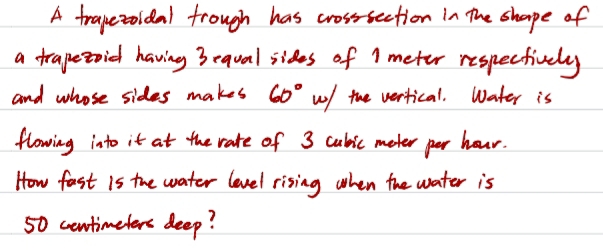 A trapezoidal trough has cross-section in the shape of
a trapezoid having 3 equal sides of 1 meter respectively
and whose sides makes 60° w/ the vertical. Water is
flowing into it at the rate of 3 cubic meter per hour.
How fast is the water level rising when the water is
50 centimeters deep?